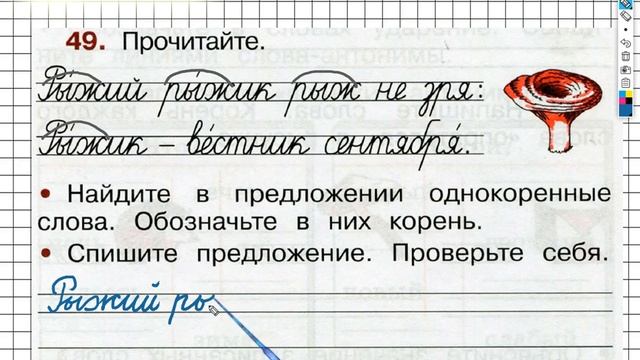 49. Прочитайте.
Ры́жий ры́жик рыж не зря:
Ры́жик – ве́стник сентября́.
• Найдите в предложении однокоренные
слова. Обозначьте в них корень.
• Спишите предложение. Проверьте себя.
Рыжий ры